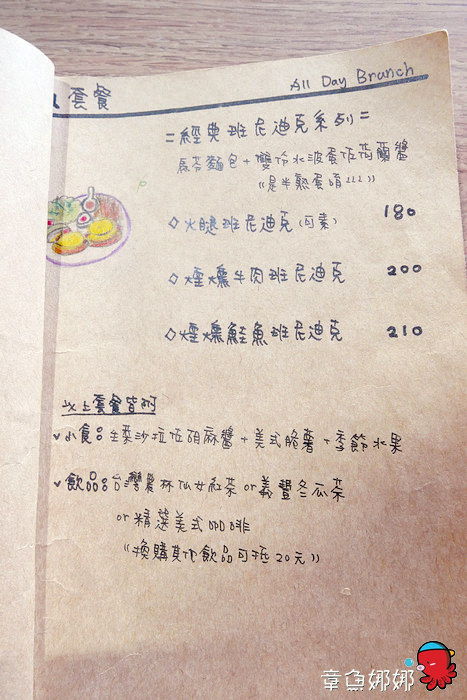 套餐
All Day Brunch
=經典班尼迪克系列=
馬芬麵包+雙份水波蛋佐荷蘭醬
((是半熟蛋唷!!!))
◇火腿班尼迪克(可素) 180
◇煙燻牛肉班尼迪克 200
◇煙燻鮭魚班尼迪克 210
以上套餐皆附
∨小食:生菜沙拉佐胡麻醬+美式脆薯+季節水果
∨飲品:台灣農林仙女紅茶 or 義豐冬瓜茶
or 精選美式咖啡
((換購其他飲品可抵20元))
章魚娜娜